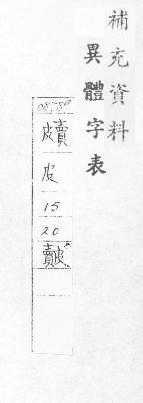 補充資料
異體字表
皮
15
20
皾